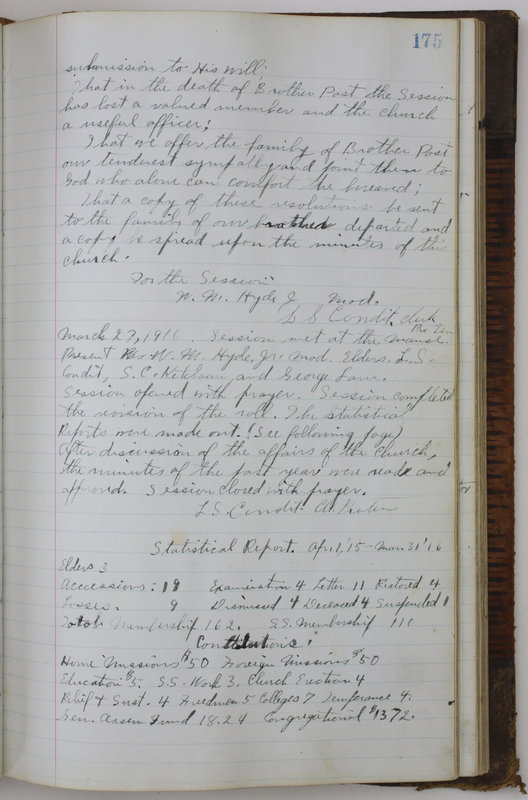 175
submission to His will;
That in the death of Brother Post the Session
has lost a valued member and the church
a useful officer;
That we offer the family of Brother Post
our tenderest sympathy and point them to
God who alone can comfort the bereaved;
That a copy of these resolutions be sent
to the family of our brother departed and
a copy be spread upon the minutes of this
church.
For the Session
W. M. Hyde Jr Mod.
L S Condit, Clerk
Pro Tem
March 27, 1916. Session met at the manse.
Present Rev W. M. Hyde, Jr. Mod. Elders L. S.
Condit, S. C. and George Lane.
Session opened with prayer. Session completed
the revision of the roll. The statistical
Reports were made out. (See following page)
After discussion of the affairs of the church,
the minutes of the past year were read and
approved. Session closed with prayer.
L S. Condit.
Statistical Report. April 1, '15 - Mar. 31 '16
Elders 3
Acccessions: 19 Examination 4 Letter 11 Restored 4
Losses. 9 Dismissed 4 Deceased 4 Suspended 1
Total Membership 162. S.S. Membership 110
Contributions:
Home Missions $50 Foreign Missions $50
Education $5. S.S. Work 3. Church Erection 4
Relief & Sust. 4 Freedmen 5 Colleges 7 Temperance 4.
Gen. Assem Fund 18.24 Congregational $1372.